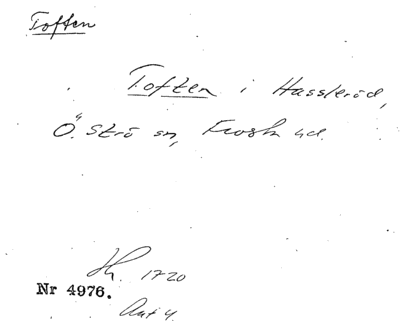 Toften
Toften i Hassleröd,
Ö. Strö sn, Frosta hd.
Jh. 1720
Nr 4976.
Ant 4.